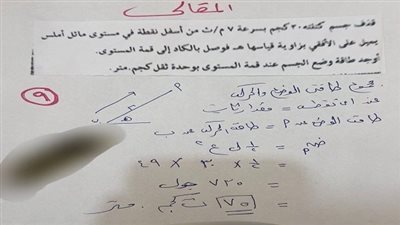 المقالى
قذف جسم كتلته ٣٠ كجم بسرعة ٧ م/ث من أسفل نقطة فى مستوى مائل أملس
يميل على الأفقى بزاوية قياسها هـ فوصل بالكاد إلى قمة المستوى.
أوجد طاقة وضع الجسم عند قمة المستوى بوحدة ثقل كجم . متر.
٩
مجموع طاقتى الوضع والحركة
عند اى نقطة = مقدار ثابت
طاقة الوضع عند م = طاقة الحركة عند ب
ب هـ م
ض م = ½ ك ع²
= ½ × ٣٠ × ٤٩
= ٧٣٥ جول
= ٧٥ ث كجم . متر